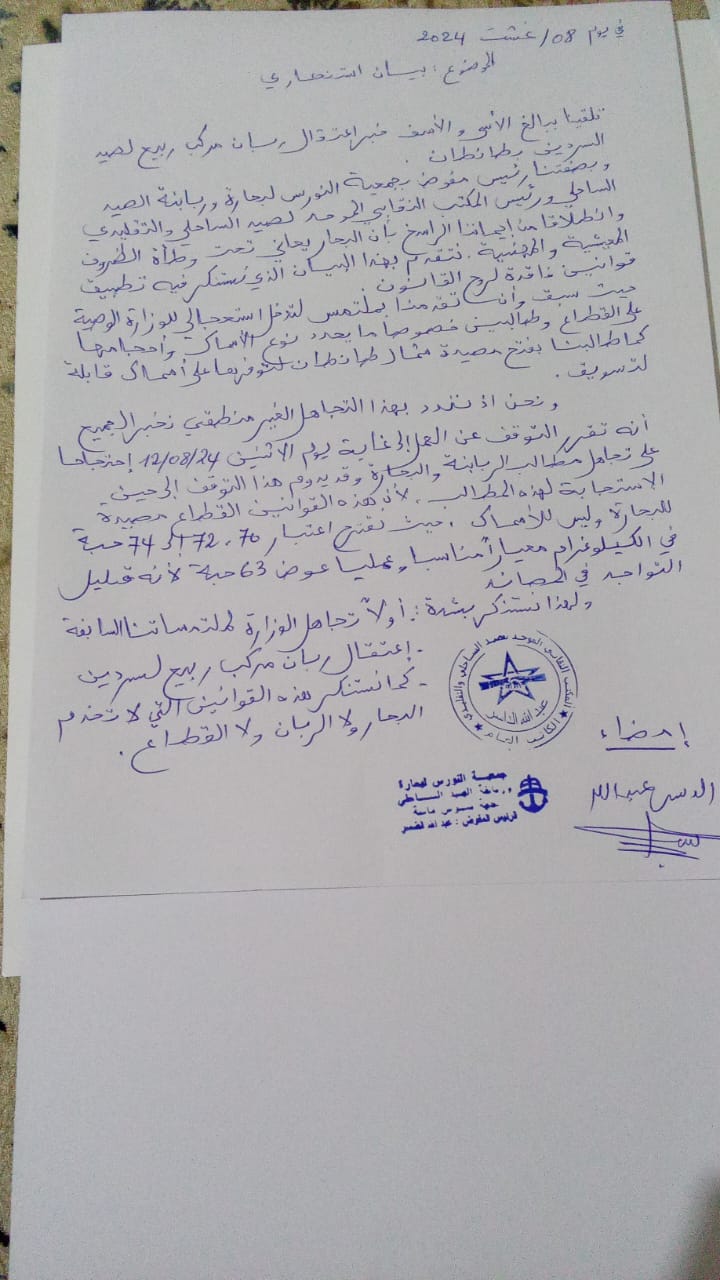 في يوم 08/غشت 2024
الموضوع: بيان استنكاري
تلقينا ببالغ الأسى والأسف خبر اعتقال ربان مركب ربيع لصيد
السردين بطانطان.
وبصفتنا رئيس مفوض بجمعية النورس لبحارة وربابنة الصيد
الساحلي ورئيس المكتب النقابي الموحد لصيد الساحلي والتقليدي
وانطلاقا من إيماننا الراسخ بأن البحار يعاني تحت وطأة الظروف
المعيشية والمهنية. نتقدم بهذا البيان الذي نستنكر فيه تطبيق
قوانين فاقدة لروح القانون
حيث سبق وأن تقدمنا بملتمس لتدخل استعجالي للوزارة الوصية
على القطاع وطالبين خصوصا ما يحدد نوع الأسماك وأحجامها
كما طالبنا بفتح مصيدة شمال طانطان لتوفرها على أسماك قابلة
لتسويق.
ونحن اذ نندد بهذا التجاهل الغير منطقي نخبر الجميع
أنه تقرر التوقف عن العمل إلى غاية يوم الاثنين 12/08/24 إحتجاجا
على تجاهل مطالب الربابنة والبحارة وقد يدوم هذا التوقف إلى حين
الاستجابة لهذه المطالب. لأن هذه القوانين القطاع مصيدة
للبحارة وليس للأسماك. حيث نقترح اعتبار 70، 72 إلى 74 حبة
في الكيلوغرام معياراً مناسبا وعمليا عوض 63 حبة لأنه قليل
التواجد في المصائد
ولهذا نستنكر بشدة: أولاً تجاهل الوزارة لملتمساتنا السابقة
- إعتقال ربان مركب ربيع لسردين
- كما نستنكر هذه القوانين التي لا تخدم
البحار ولا الربان ولا القطاع.
المكتب النقابي الموحد لصيد الساحلي والتقليدي
الكاتب العام
إمضاء
عبد الله
جمعية النورس لبحارة
وربابنة الصيد الساحلي
جهة سوس ماسة
الرئيس المفوض: عبد الله